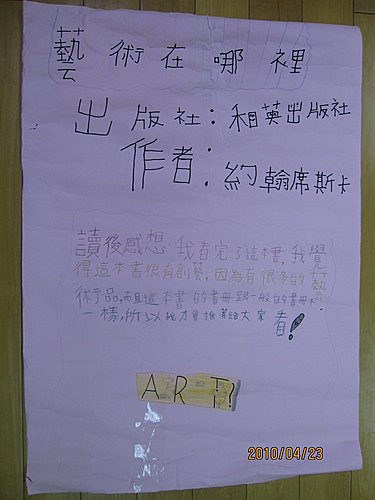 藝術在哪裡
出版社：和英出版社
作者：約翰席斯卡
讀後感想：我看完了這本書，我覺
得這本書很有創藝，因為有很多的藝
術品，而且這本書的書冊跟一般的書冊不
一樣，所以我才會推薦給大家看！
ART?
2010/04/23